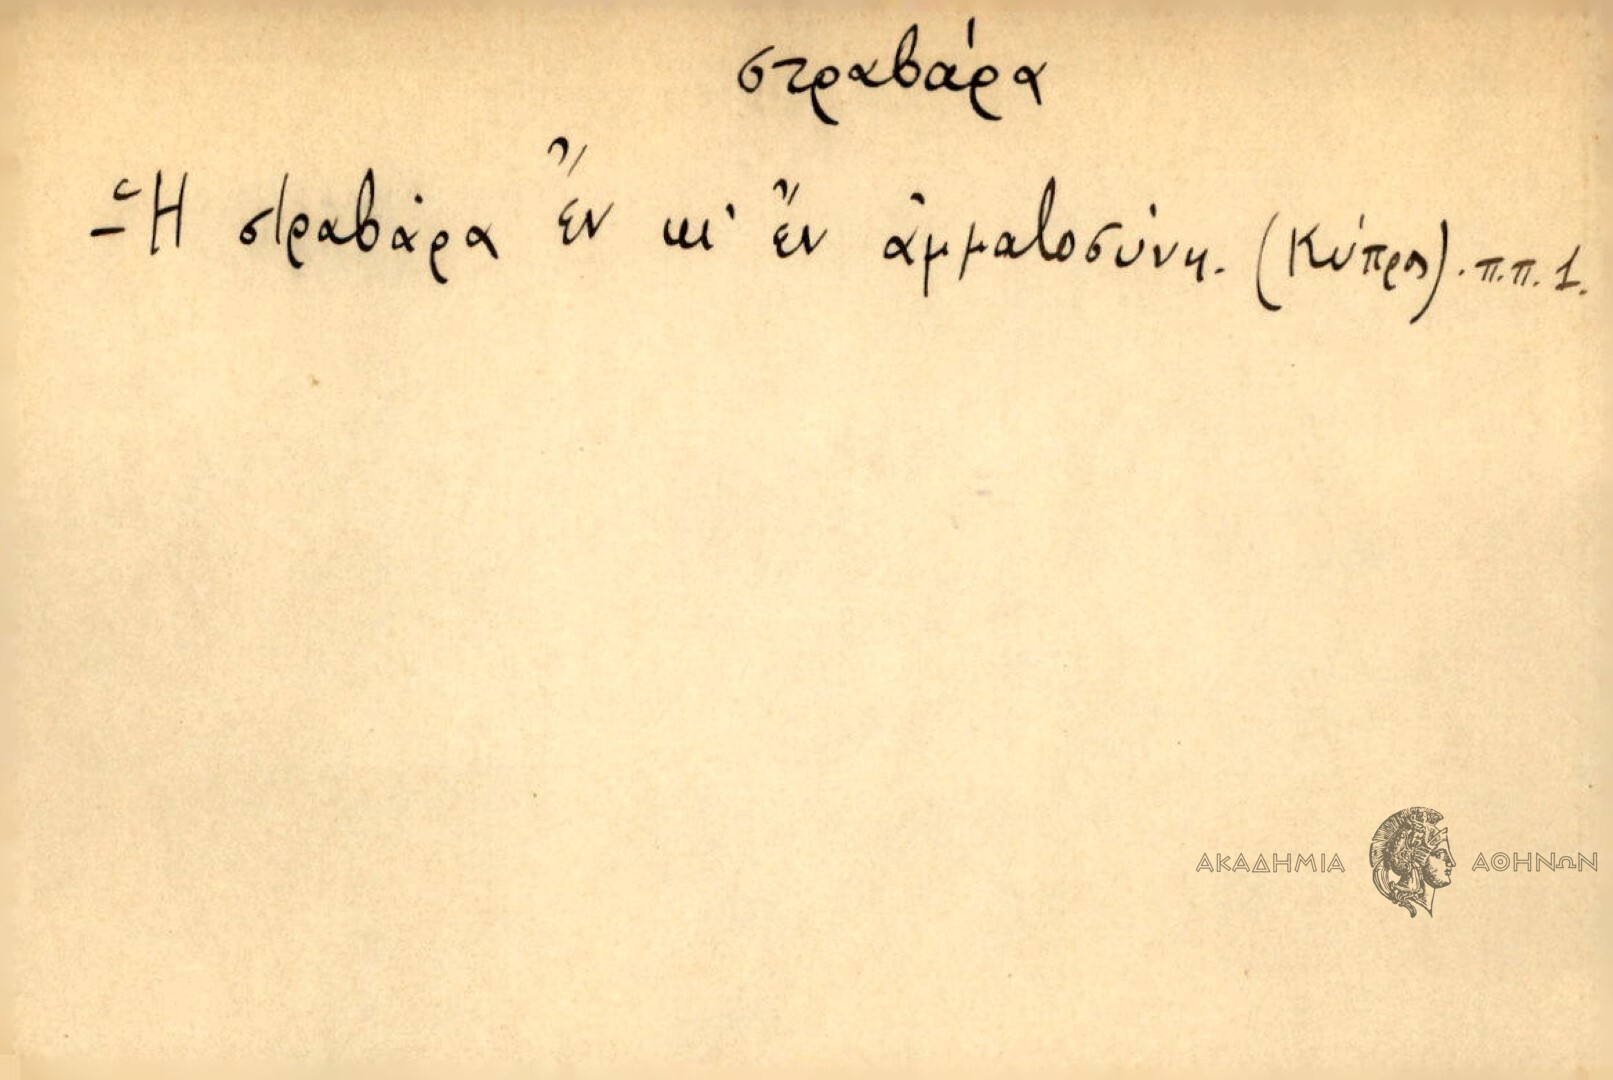 στραβάρα
– Ἡ στραβάρα ἔν κι' ἔν ἀμματοσύνη. (Κύπρος). π.π. 1.
ΑΚΑΔΗΜΙΑ ΑΘΗΝΩΝ